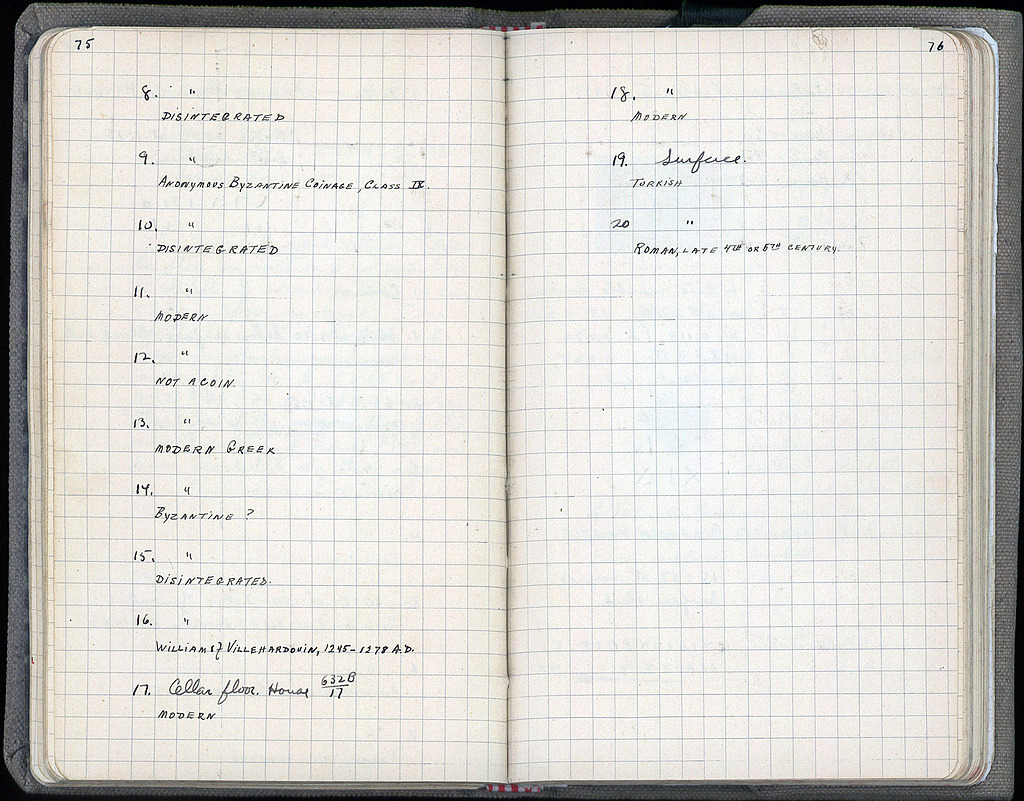 75
8. "
DISINTEGRATED
9. "
ANONYMOUS BYZANTINE COINAGE, CLASS IV.
10. "
DISINTEGRATED
11. "
MODERN
12. "
NOT A COIN.
13. "
MODERN GREEK
14. "
BYZANTINE ?
15. "
DISINTEGRATED.
16. "
WILLIAM of VILLEHARDOUIN, 1245-1278 A.D.
17. Cellar floor. House 632B/17
MODERN
76
18. "
MODERN
19. Surface.
TURKISH
20 "
ROMAN, LATE 4TH OR 5TH CENTURY.